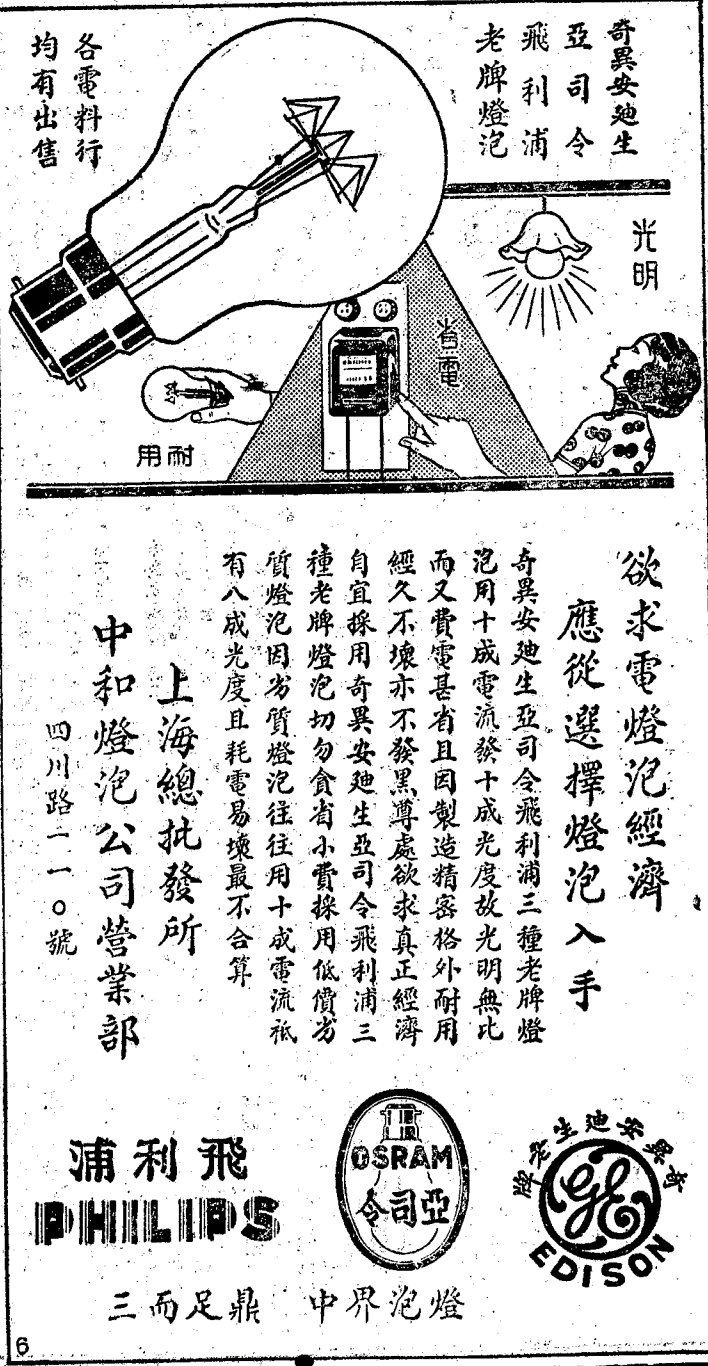 奇異安廸生
亞司令
飛利浦
老牌燈泡
各電料行
均有出售
光明
省電
耐用
欲求電燈泡經濟
應從選擇燈泡入手
奇異安廸生亞司令飛利浦三種老牌燈
泡用十成電流發十成光度故光明無比
而又費電甚省且因製造精密格外耐用
經久不壞亦不發黑譚處欲求真正經濟
自宜採用奇異安廸生亞司令飛利浦三
種老牌燈泡切勿貪省小費採用低價劣
質燈泡因劣質燈泡往往用十成電流祗
有八成光度且耗電易壞最不合算
上海總批發所
中和燈泡公司營業部
四川路二一〇號
奇異安廸生老牌
GE
EDISON
OSRAM
亞司令
飛利浦
PHILIPS
燈泡界中 鼎足而三
6